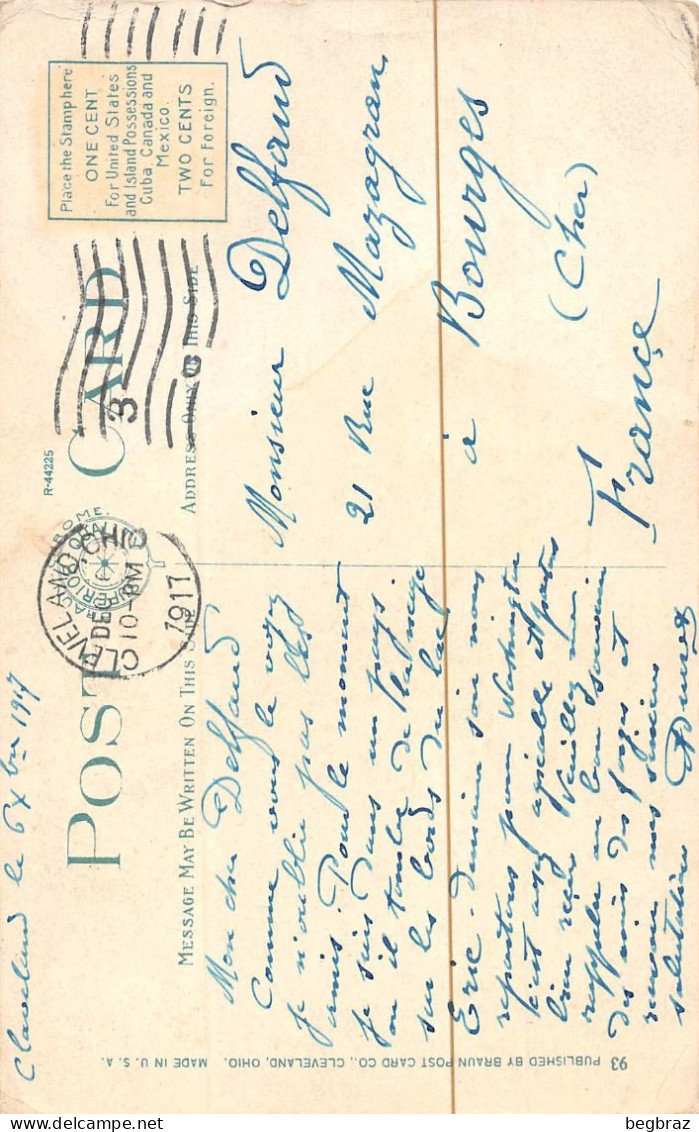 Cleveland le 6 Xbre 1917
POST CARD
R-44225
CLEVELAND, OHIO
DEC 6
10-PM
1917
3
Place the Stamp here
ONE CENT
For United States
and Island Possessions
Cuba, Canada and
Mexico.
TWO CENTS
For Foreign.
MESSAGE MAY BE WRITTEN ON THIS SIDE
ADDRESS ONLY ON THIS SIDE
Mon cher Delfaud
Comme vous le voyez
je n'oublie pas les
amis. Pour le moment
je suis dans un pays
où il tombe de la neige
sur les bords du lac
Erié. demain soir nous
repartons pour Washington
c'est assez agréable et partout
bien reçu Veuillez me
rappeler au bon souvenir
des amis des forges et
recevoir mes sincères
salutations
Monsieur Delfaud
21 Rue Mazagran
à Bourges
(Cher)
France
93 PUBLISHED BY BRAUN POST CARD CO., CLEVELAND, OHIO. MADE IN U. S. A.
begbraz